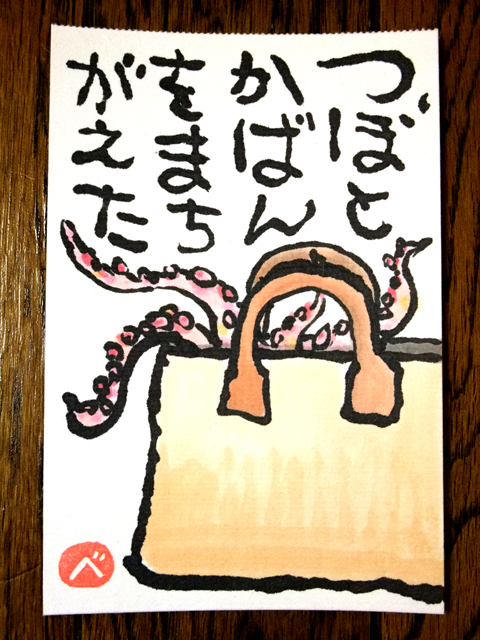 つぼと
かばん
をまち
がえた
べ